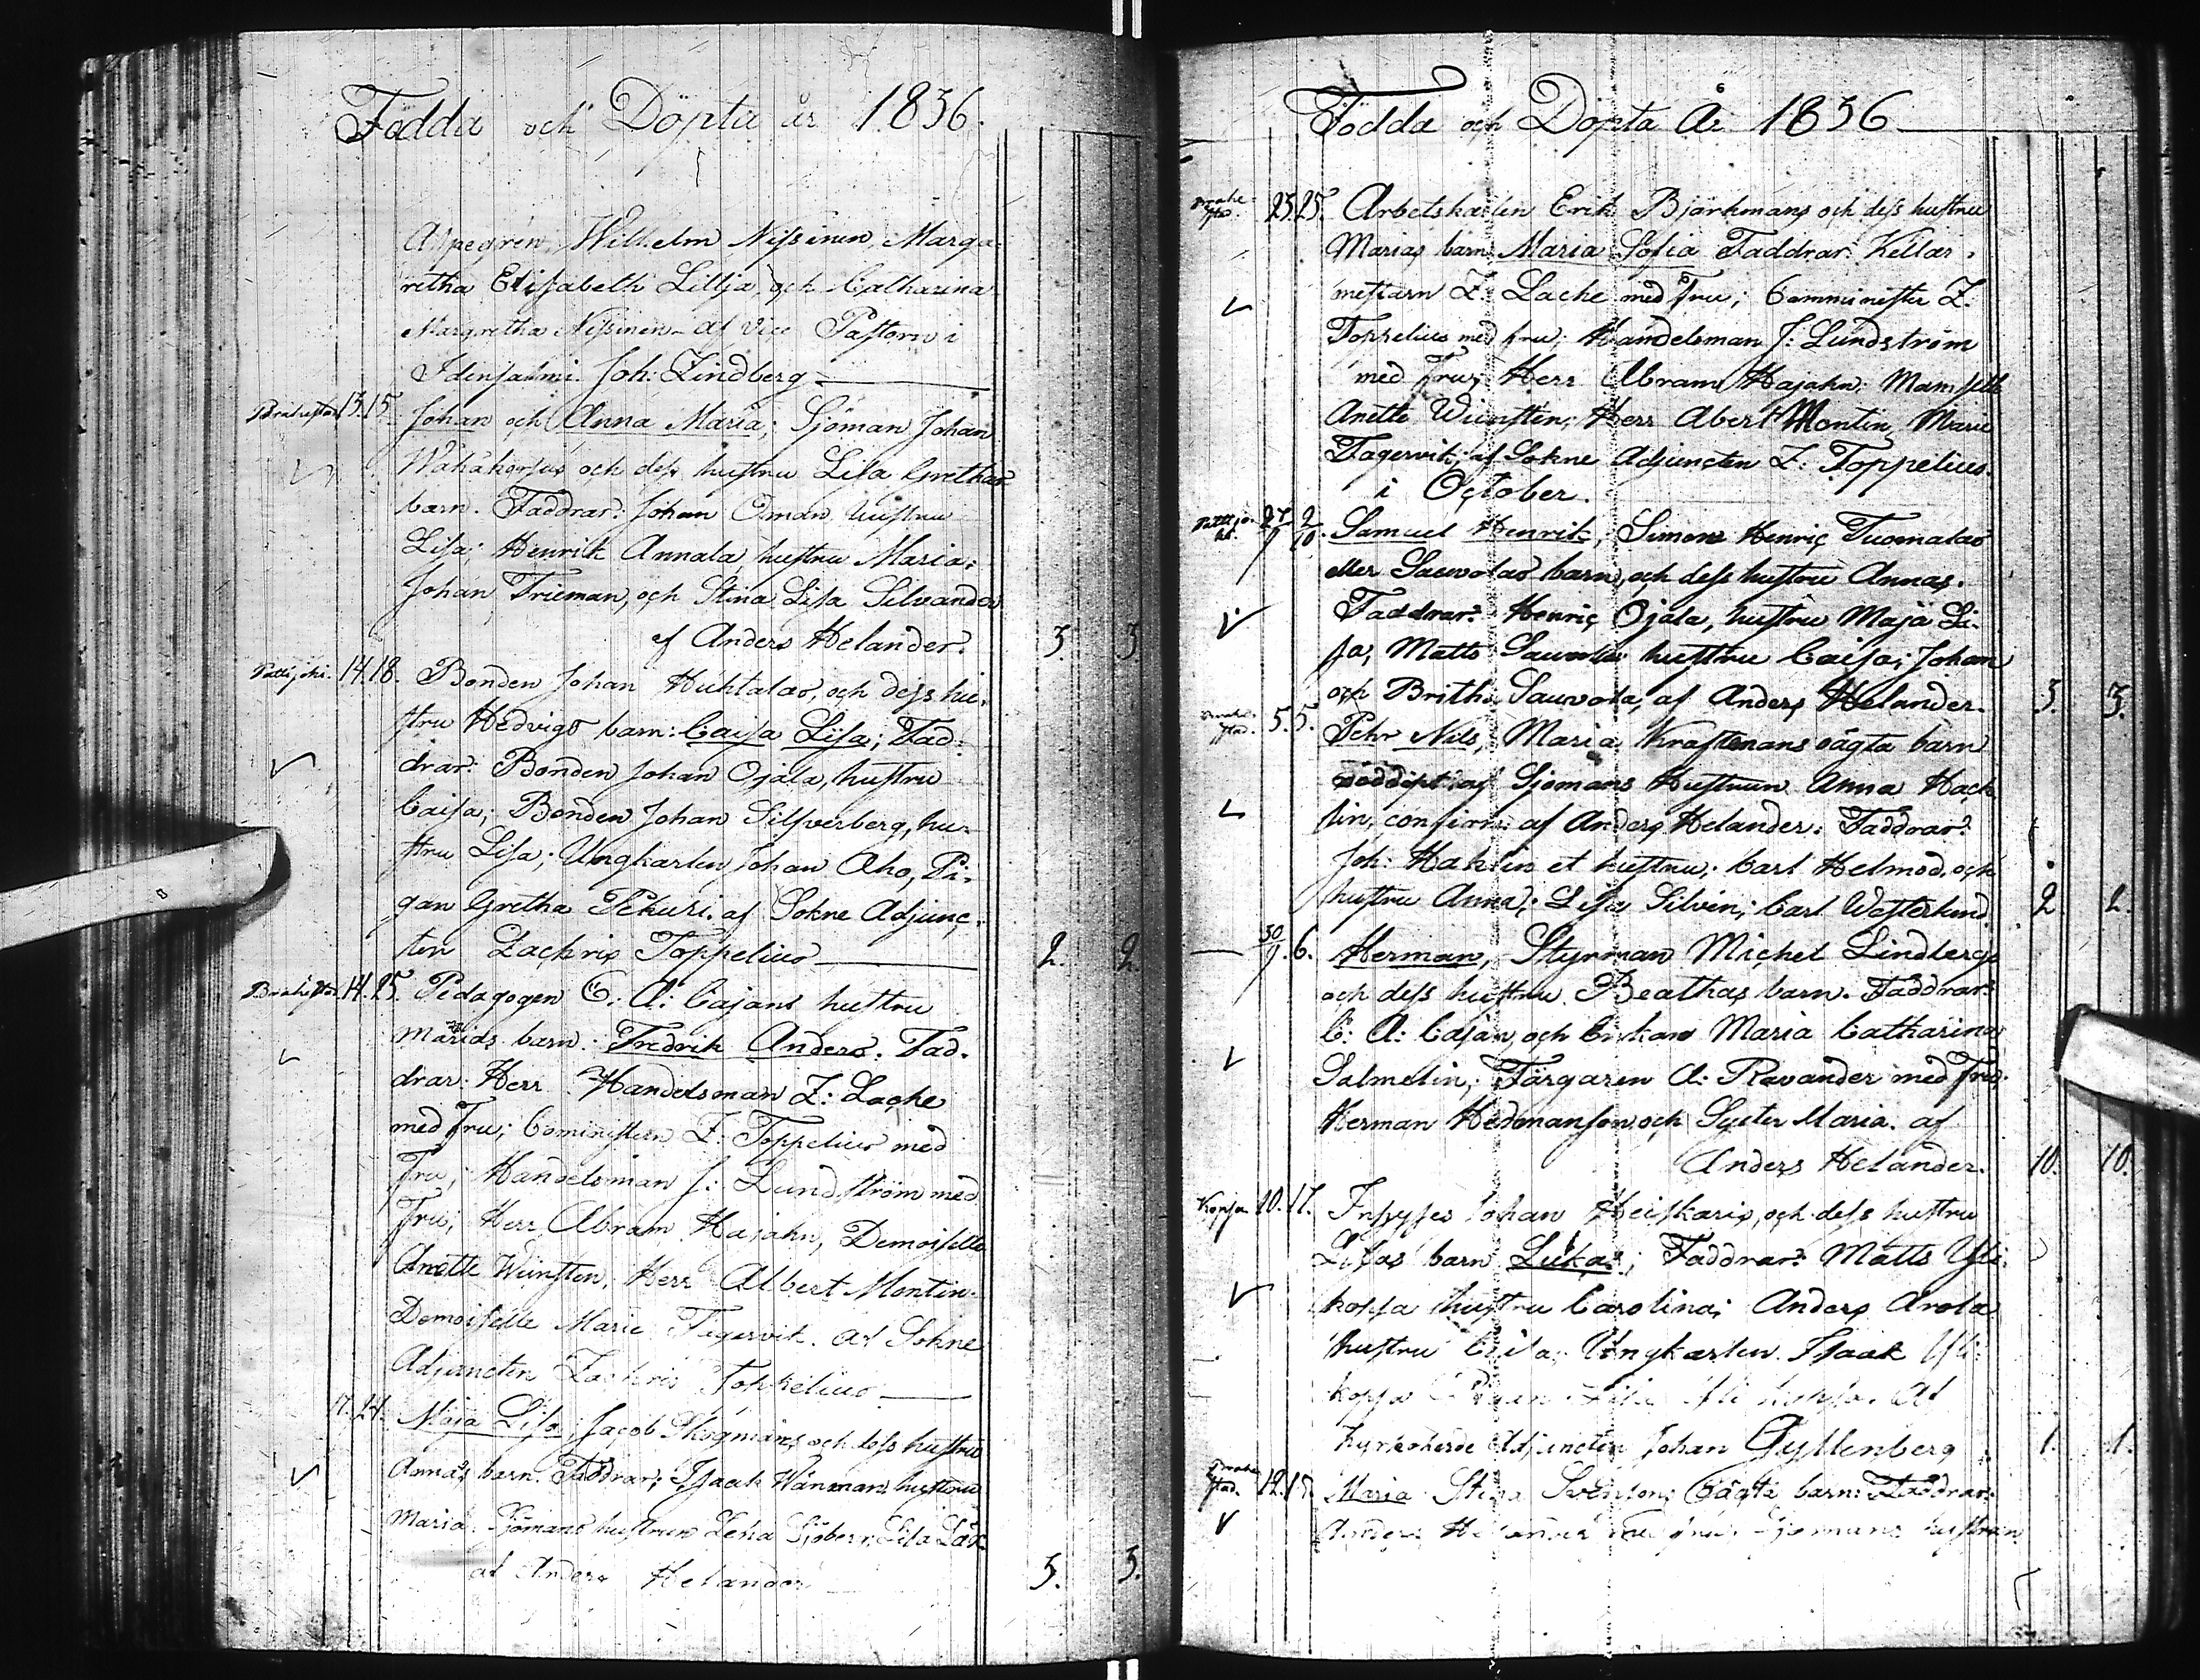 Födda och Döpta år 1836.
Aspegrén, Wilhelm Nissinen, Marga-
retha Elisabeth Lillja, och Catharina
Margretha Nissinen. af Vice Pastorn i
Idensalmi. Joh: Lindberg
Brahestad 13. 15. Johan och Anna Maria; Sjöman Johan
och dess hustru Lisa Grethas
barn. Faddrar: Johan Öman, hustru
Lisa; Henrik Annala, hustru Maria;
Johan Frieman, och Stina Lisa Silvander
af Anders Helander. 3. 3
Pattijoki. 14. 18. Bonden Johan Huhtalas, och dess hu-
stru Hedvigs barn: Caisa Lisa; Fad-
drar: Bonden Johan Ojala, hustru
Caisa; Bonden Johan Silfverberg, hu-
stru Lisa; Ungkarlen Johan Aho, Pi-
gan Gretha Pekuri. af Sokne Adjunc-
ten Zachris Toppelius 2. 2.
Brahestad. 14. 25. Pedagogen C: A: Cajans hustru
Marias barn: Fredrik Anders. Fad-
drar: Herr Handelsman Z: Lache
med Fru; Cominstern Z: Toppelius med
Fru; Handelsman J: Lundström med
Fru; Herr Abram Hajahn, Demoiselle
Anette Wünsten, Herr Albert Montin
Demoiselle Marie Fagervik. Af Sokne
Adjuncten Zachris Toppelius
17. 24. Maja Lisa; Jacob Skogmans och dess hustru
Annas barn. Faddrar; Isaak Wänman hustru
Maria. Sjömans hustrun Lena Sjöberg, Lisa
af Anders Helander 3. 3.
Födda och Döpta År 1836
Brahestad. 23. 25. Arbetskarlen Erik Björkmans och dess hustru
Marias barn Maria Sofia Faddrar: Kellar-
mestarn Z: Lache med Fru; Comminister Z.
Toppelius med fru; Handelsman J: Lundström
med Fru; Herr Abram Hajahn; Mamsell
Anette Wünsten, Herr Abert Montin, Marie
Fagervik; af Sokne Adjuncten Z: Toppelius.
i October.
Pattijoki. 27/9 2/10. Samuel Henrik, Simon Henric Tuomalas
eller Sauvolas barn, och dess hustru Annas.
Faddrar: Henric Ojala, hustru Maja Li-
sa, Matts Sauvola hustru Caisa; Johan
och Britha Sauvola, af Anders Helander. 3. 3.
Brahestad. 5. 5. Pehr Nils, Maria Kraftmans oägta barn
nöddöpt af Sjömans Hustrun Anna Hack
lin, confirm: af Anders Helander. Faddrar:
Joh: Haklin et hustru; Carl Helmod, och
hustru Anna; Lisa Silvén; Carl Westerlund. 2 2.
30/9. 6. Herman, Styrman Michel Lindbergs
och dess hustru Beathas barn. Faddrar:
C: A: Cajan, och Maria Catharina
Salmelin; Färgaren A: Ravander med Fru.
Herman Hedmanson och Syster Maria. af
Anders Helander. 10. 10.
Kopsa 10. 17. Inhyses Johan Heiskaris, och dess hustru
Lisas barn Lukas; Faddrar: Matts Yli-
kopsa hustru Carolina; Anders Arola
hustru Ungkarlen Isaak Yli-
kopsa Af
Kyrkoherde Adjuncten Johan Gyllenberg 1. 1.
Brahestad. 12. Maria Stina Svensons Oägta barn: Faddrar:
Anders Helander med fru; Sjömans hustrun